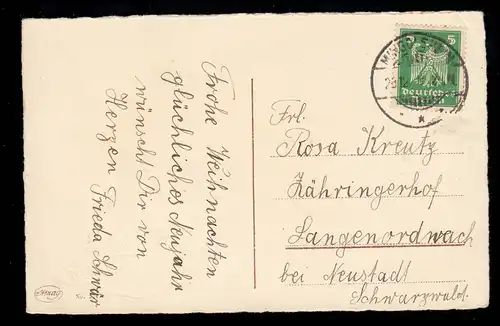 Frohe Weihnachten
glückliches Neujahr
wünscht Dir von
Herzen Frieda Schwär
5
Deutsches
Reich
Frl.
Rosa Kreutz
Zähringerhof
Langenordwach
bei Neustadt
Schwarzwald.